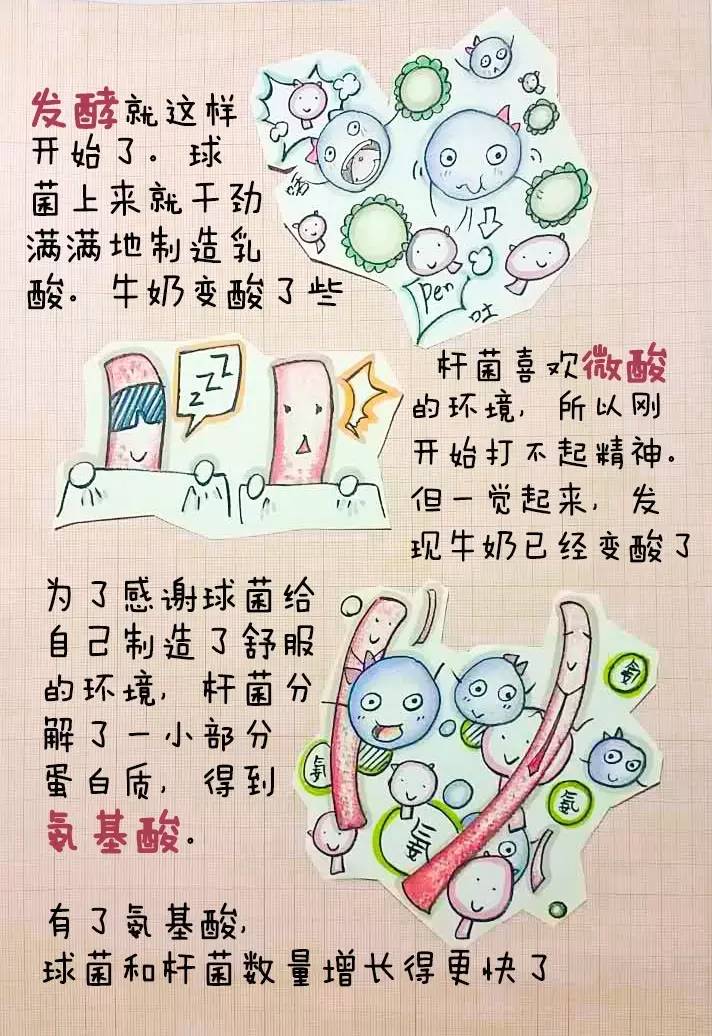 发酵就这样
开始了。球
菌上来就干劲
满满地制造乳
酸。牛奶变酸了些
pen
吐
ZZZ
杆菌喜欢微酸
的环境，所以刚
开始打不起精神。
但一觉起来，发
现牛奶已经变酸了
为了感谢球菌给
自己制造了舒服
的环境，杆菌分
解了一小部分
蛋白质，得到
氨基酸。
氨
氨
氨
氨
有了氨基酸，
球菌和杆菌数量增长得更快了